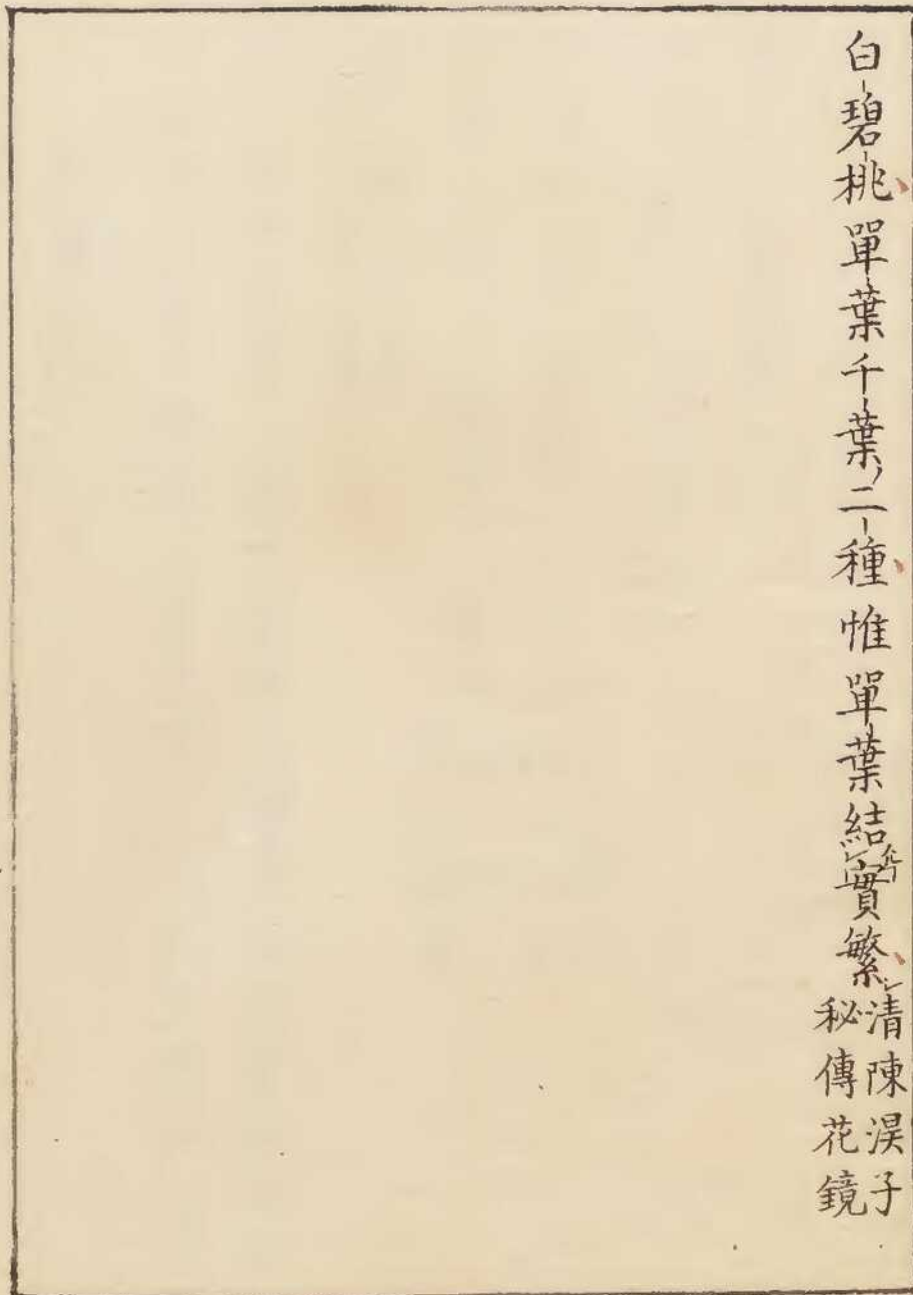 白碧桃單葉千葉ノ二種惟單葉結レ實ヿ繁シ
清陳淏子
秘傳花鏡